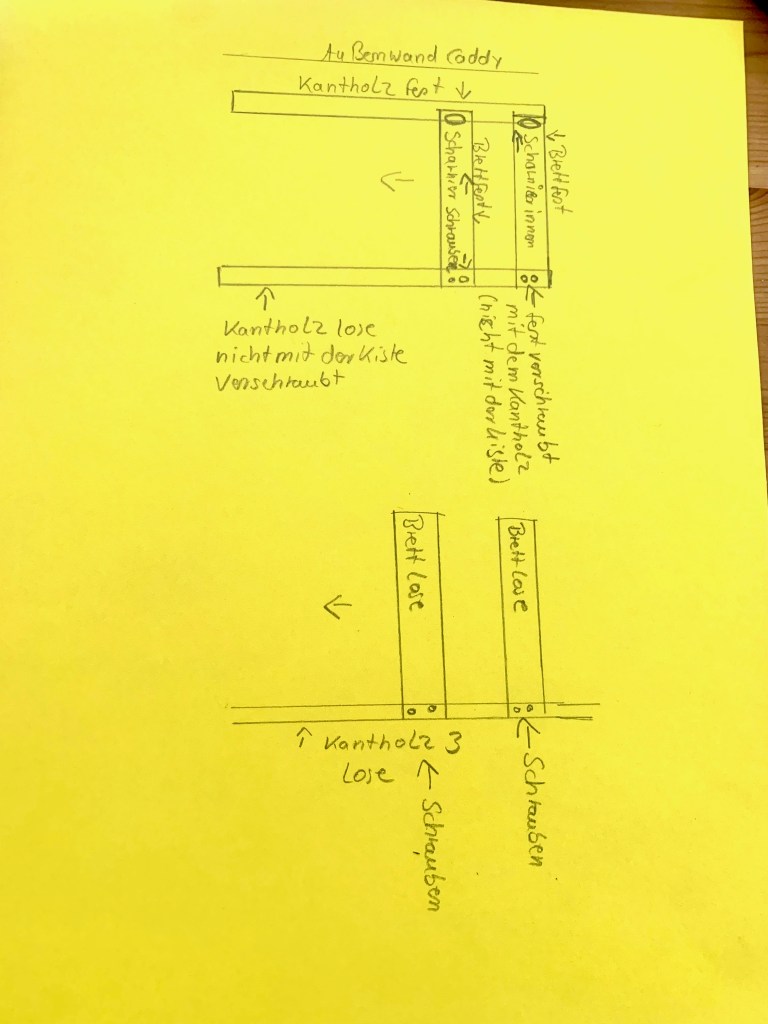 Außenwand Caddy
Kantholz fest ↓
↓ Brett fest
Scharnier innen
Brett fest ↓
Scharnier Schrauben
Kantholz lose
nicht mit der Kiste
verschraubt
fest verschraubt
mit dem Kantholz
(nicht mit der Kiste)
Brett lose
Brett lose
↑ Kantholz 3
lose
← Schrauben
← Schrauben